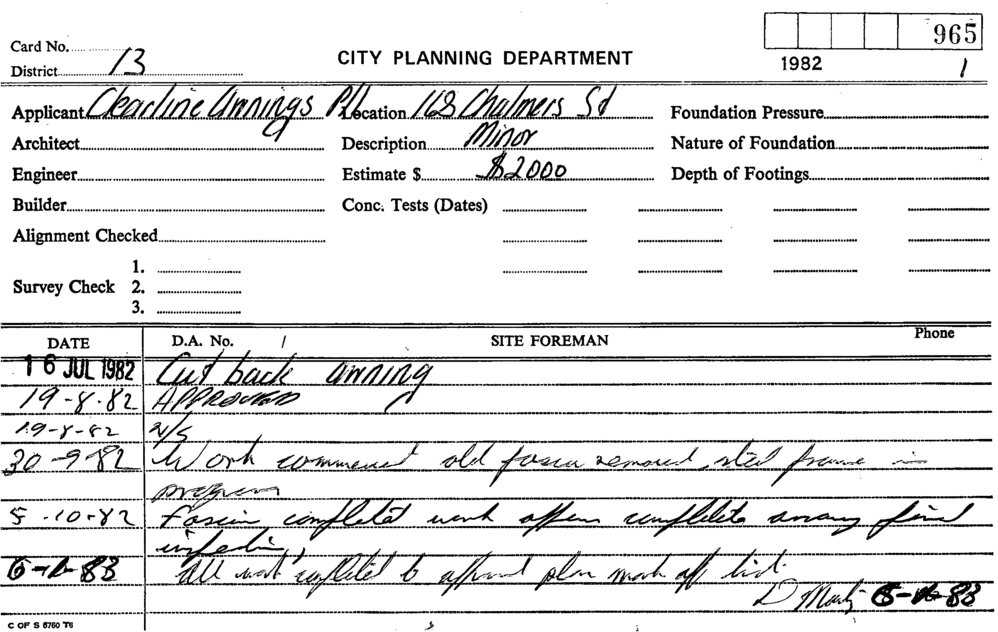 965
Card No.
CITY PLANNING DEPARTMENT
District 13
1982 1
Applicant Clearline Awnings P/L Location 168 Chalmers St Foundation Pressure
Architect Description Minor Nature of Foundation
Engineer Estimate $ $2000 Depth of Footings
Builder Conc. Tests (Dates)
Alignment Checked
1.
Survey Check 2.
3.
DATE D.A. No. / SITE FOREMAN Phone
16 JUL 1982 Cut back awning
19-8-82 APPROVED
19-8-82 N/S
30-9-82 Work commenced old fascia removed, steel frame in
progress
5-10-82 Fascia completed work appears complete awaiting final
inspection
All work completed to approved plan mark off list.
D
C OF S 6760 T6